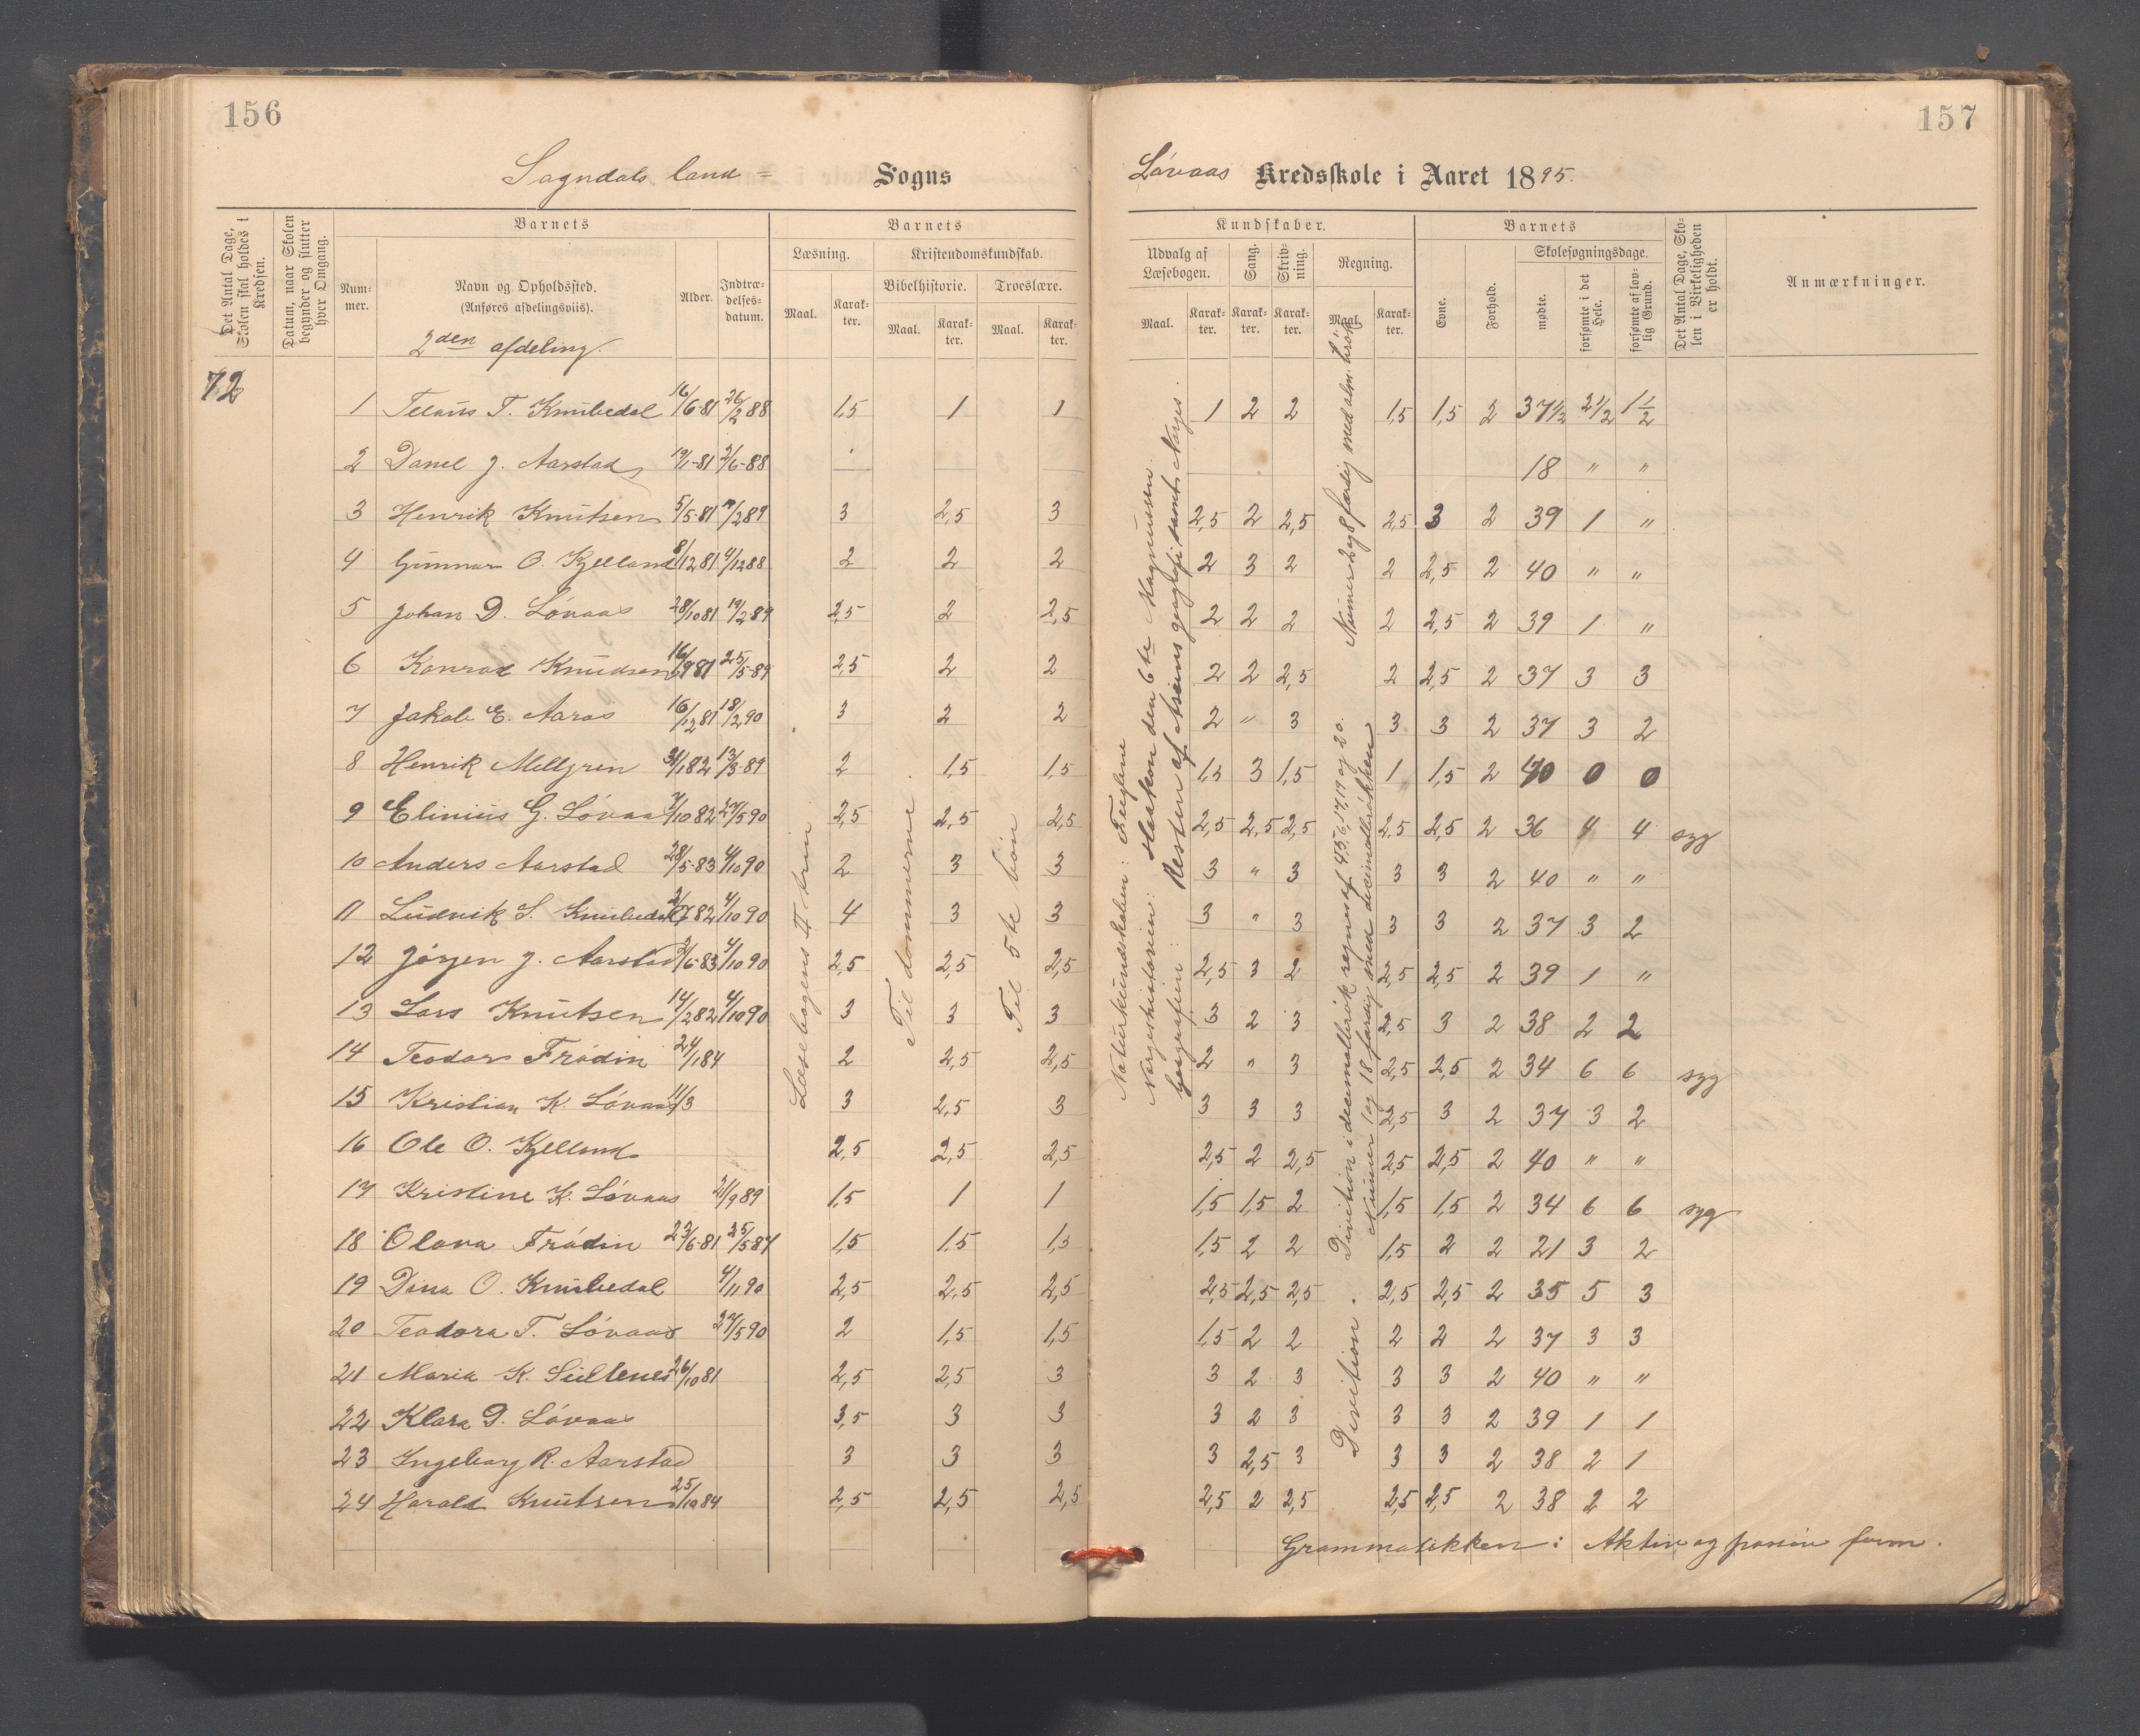 156
157
Sogndals land= Sogns
Løvaas Kredsskole i Aaret 1895.
Det Antal Dage, Skolen skal holdes i Kredsen.
Datum, naar Skolen begynder og slutter hver Omgang.
Barnets
Nummer.
Navn og Opholdssted.
(Anføres afdelingsviis).
Alder.
Indtrædelsesdatum.
Barnets
Læsning.
Maal.
Karakter.
Kristendomskundskab.
Bibelhistorie.
Maal.
Karakter.
Troeslære.
Maal.
Karakter.
Kundskaber.
Udvalg af Læsebogen.
Maal.
Karakter.
Sang.
Karakter.
Skrivning.
Karakter.
Regning.
Maal.
Karakter.
Barnets
Evne.
Forhold.
Skolesøgningsdage.
mødte.
forsømte i det Hele.
forsømte af lovlig Grund.
Det Antal Dage, Skolen i Virkeligheden er holdt.
Anmærkninger.
2den afdeling.
72
1 T. Knubedal 16/6-81 26/2 88 1,5 1 1 1 2 2 1,5 1,5 2 37 1/2 2 1/2 1 1/2
2 Danel J. Aarstad 19/1-81 2/6-88 18 " "
3 Henrik Knutsen 5/5-81 19/2 89 3 2,5 3 2,5 2 2,5 2,5 3 2 39 1 "
4 Gunnar O. Kjelland 8/12 81 4/12 88 2 2 2 2 3 2 2 2,5 2 40 " "
5 Johan D. Løvaas 28/10 81 19/2 89 2,5 2 2,5 2 2 2 2 2,5 2 39 1 "
6 Konrad Knudsen 16/9 81 25/5-89 2,5 2 2 2 2 2,5 2 2,5 2 37 3 3
7 Jakob E. Aaros 16/12 81 18/2 90 3 2 2 2 " 3 3 3 2 37 3 2
8 Henrik Mellgren 31/1 82 13/3-89 2 1,5 1,5 1,5 3 1,5 1 1,5 2 40 0 0
9 Elinius G. Løvaas 7/10 82 27/5 90 2,5 2,5 2,5 2,5 2,5 2,5 2,5 2,5 2 36 4 4 syg
10 Anders Aarstad 28/5-83 4/10 90 2 3 3 3 " 3 3 3 2 40 " "
11 Ludvik S. Knubedal 2/7 82 4/10 90 4 3 3 3 " 3 3 3 2 37 3 2
12 Jørgen J. Aarstad 2/6-83 4/10 90 2,5 2,5 2,5 2,5 3 2 2,5 2,5 2 39 1 "
13 Lars Knutsen 14/2 82 4/10 90 3 3 3 3 2 3 2,5 3 2 38 2 2
14 Teodor Frødin 24/1 84 2 2,5 2,5 2 " 3 2,5 2,5 2 34 6 6 syg
15 Kristian K. Løvaas 11/3 3 2,5 3 3 3 3 2,5 3 2 37 3 2
16 Ole O. Kjelland 2,5 2,5 2,5 2,5 2 2,5 2,5 2,5 2 40 " "
17 Kristine K. Løvaas 21/9 89 1,5 1 1 1,5 1,5 2 1,5 1,5 2 34 6 6 syg
18 Olava Frødin 23/6-81 25/5 87 1,5 1,5 1,5 1,5 2 2 1,5 2 2 21 3 2
19 Dina O. Knubedal 4/11 90 2,5 2,5 2,5 2,5 2,5 2,5 2,5 2,5 2 35 5 3
20 Teodora T. Løvaas 27/5 90 2 1,5 1,5 1,5 2 2 2 2 2 37 3 3
21 Maria K. Sultenes 26/10 81 2,5 2,5 3 3 2 3 3 3 2 40 " "
22 Klara D. Løvaas 3,5 3 3 3 2 3 3 3 2 39 1 1
23 Ingeborg R. Aarstad 3 3 3 3 2,5 3 3 3 2 38 2 1
24 Harald Knutsen 25/10 84 2,5 2,5 2,5 2,5 2 2,5 2,5 2,5 2 38 2 2
Læsebogens II trin
Til dommerne.
Til 5te bøn
Naturkundskaben: Fuglene
Norgeshistorien: Haakon den 6te Magnussen.
Geografien: Resten af Asiens geografi, samt Norges.
Numer 2 og 8 færdig med alm. brøk
Divition i decimalbrøk regnes af 4,5,6,17,19 og 20.
Numer 1 og 18 færdig med decimalbrøkken
Divition.
Grammatikken: Aktiv og passiv form.